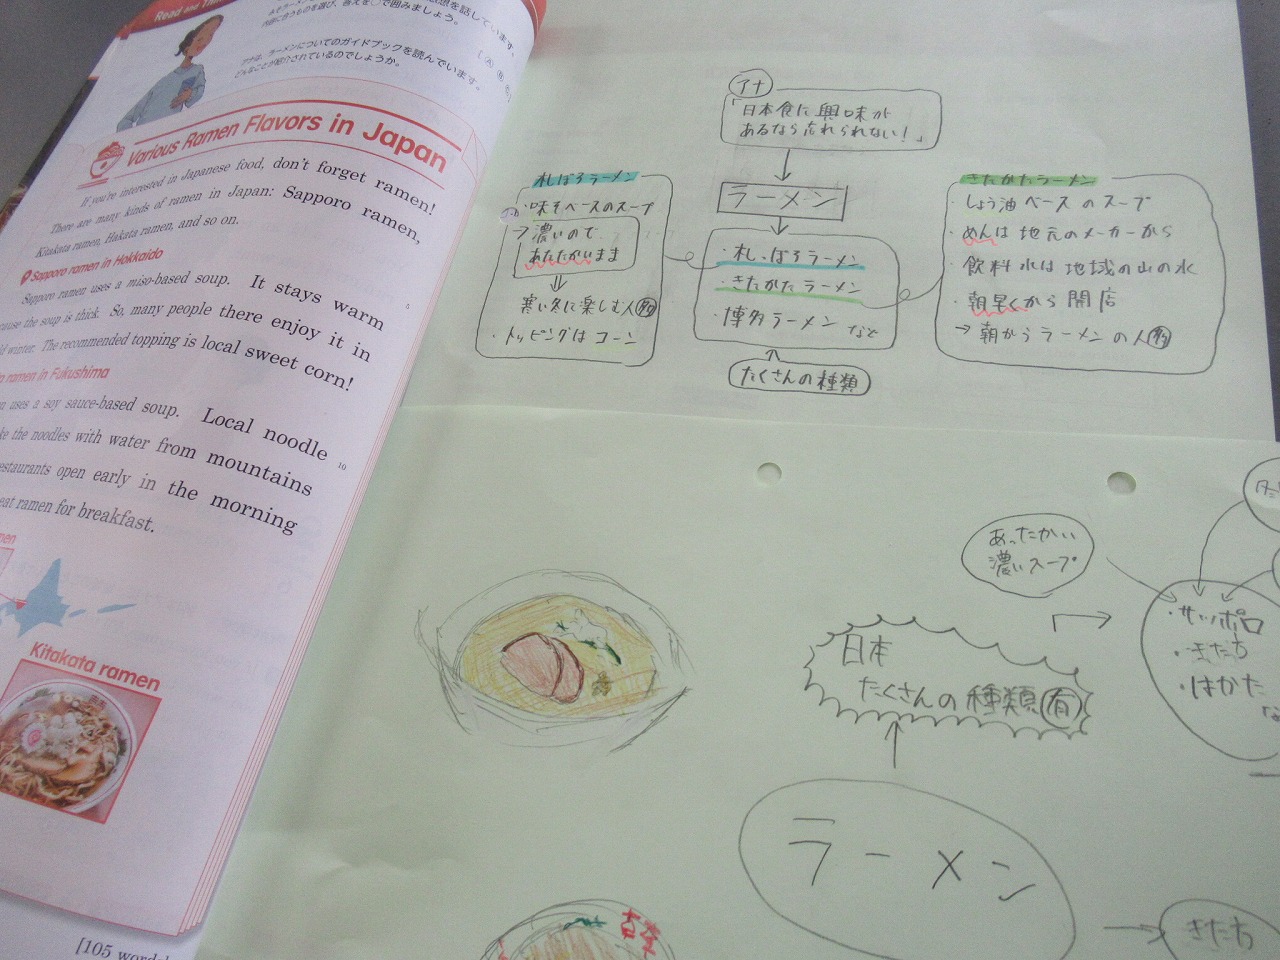 Read and Thin
内容に合うものを選び、答えを○で囲みましょう。
アナは、ラーメンについてのガイドブックを読んでいます。
どんなことが紹介されているのでしょうか。
Various Ramen Flavors in Japan
If you're interested in Japanese food, don't forget ramen!
There are many kinds of ramen in Japan: Sapporo ramen,
Kitakata ramen, Hakata ramen, and so on.
Sapporo ramen in Hokkaido
Sapporo ramen uses a miso-based soup. It stays warm
5
cause the soup is thick. So, many people there enjoy it in
winter. The recommended topping is local sweet corn!
ramen in Fukushima
uses a soy sauce-based soup. Local noodle
10
the noodles with water from mountains
estaurants open early in the morning
eat ramen for breakfast.
Kitakata ramen
[105 words
アナ
「日本食に興味が
あるなら忘れられない!」
ラーメン
・札っぽろラーメン
・きたかたラーメン
・博多ラーメン など
たくさんの種類
札ぽろラーメン
・味そベースのスープ
→濃いので
あたたかいまま
寒い冬に楽しむ人多
・トッピングはコーン
きたかたラーメン
・しょう油ベースのスープ
・めんは地元のメーカーから
・飲料水は地域の山の水
・朝早くから開店
→朝からラーメンの人多
あったかい
濃いスープ
・サッポロ
・きたか
・はかた
日本
たくさんの種類有
ラーメン
きたか